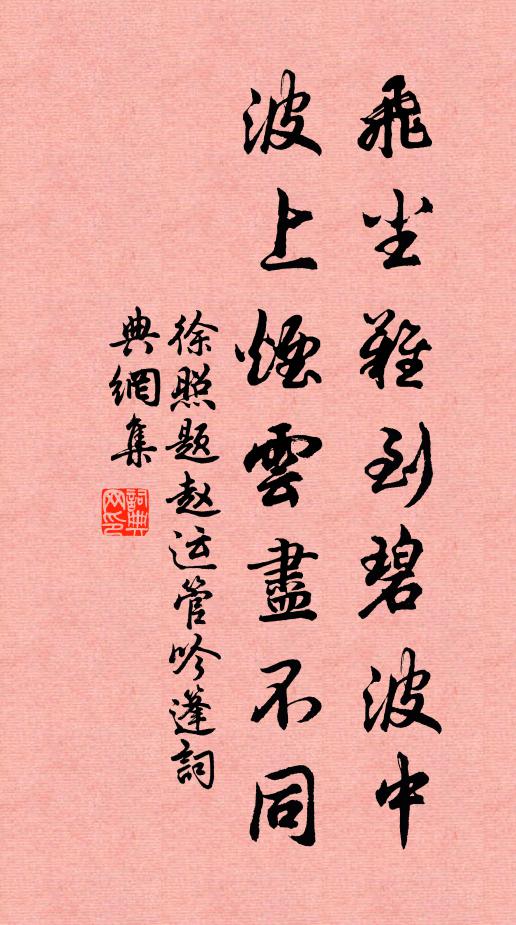 飛尘難到碧波中
波上煙雲盡不同
徐照题赵运管吟蓬詞
典網集
詞典网印